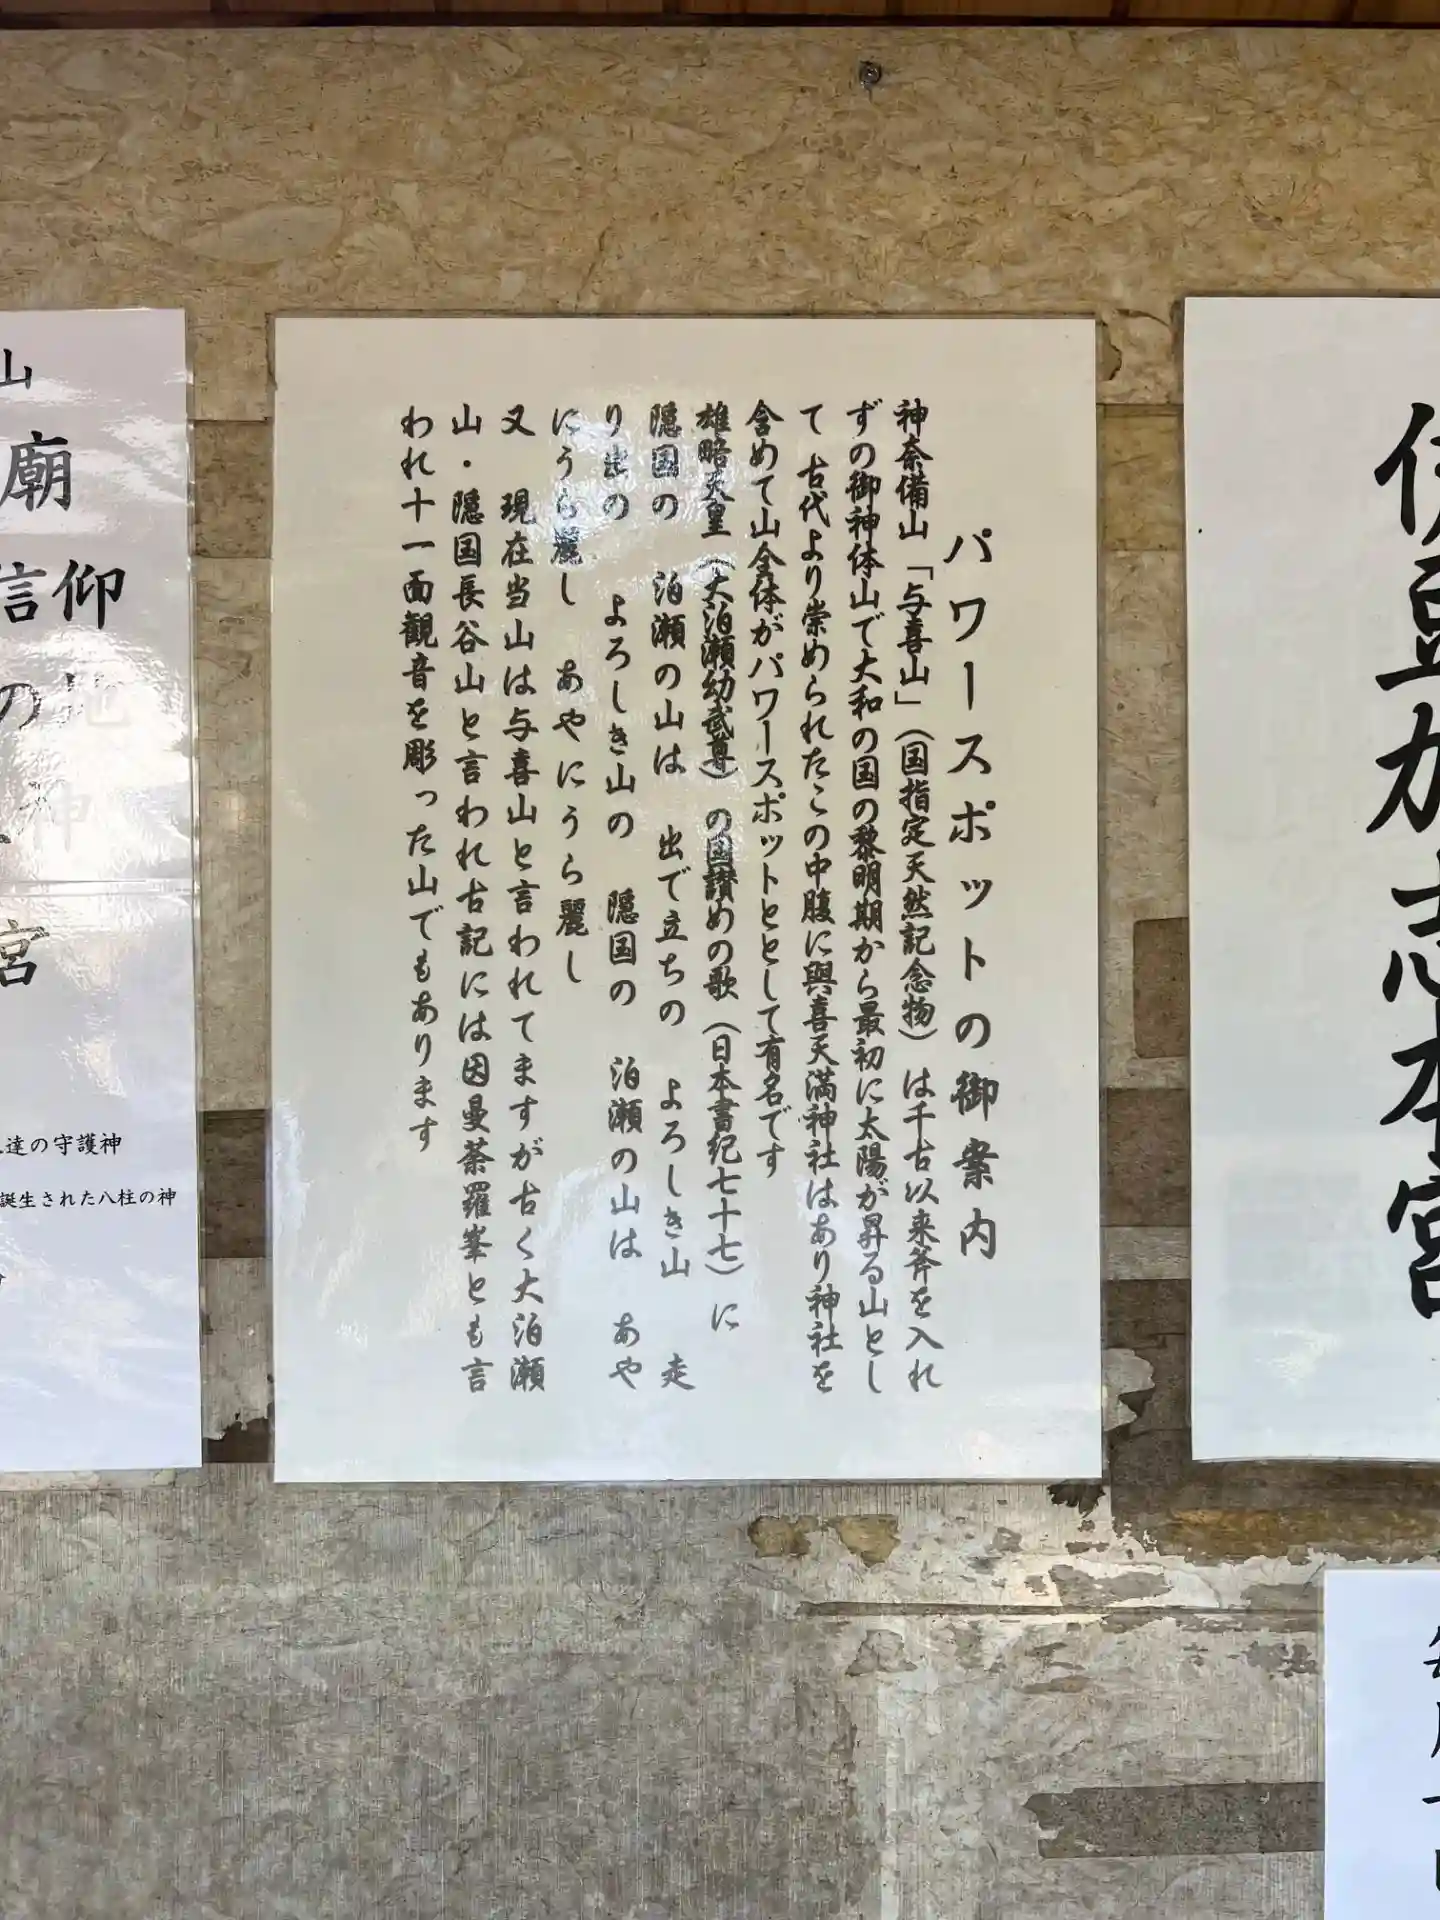 伊豆加志本宮
パワースポットの御案内
神奈備山「与喜山」(国指定天然記念物)は千古以来斧を入れ
ずの御神体山で大和の国の黎明期から最初に太陽が昇る山とし
て 古代より崇められたこの中腹に與喜天満神社はあり神社を
含めて山全体がパワースポットととして有名です
雄略天皇(大泊瀬幼武尊)の国讃めの歌(日本書紀七十七)に
隠国の 泊瀬の山は 出で立ちの よろしき山 走
り出の よろしき山の 隠国の 泊瀬の山は あや
にうら麗し あやにうら麗し
又 現在当山は与喜山と言われてますが古く大泊瀬
山・隠国長谷山と言われ古記には因曼荼羅峯とも言
われ十一面観音を彫った山でもあります
山
廟
信仰
の
宮
達の守護神
誕生された八柱の神